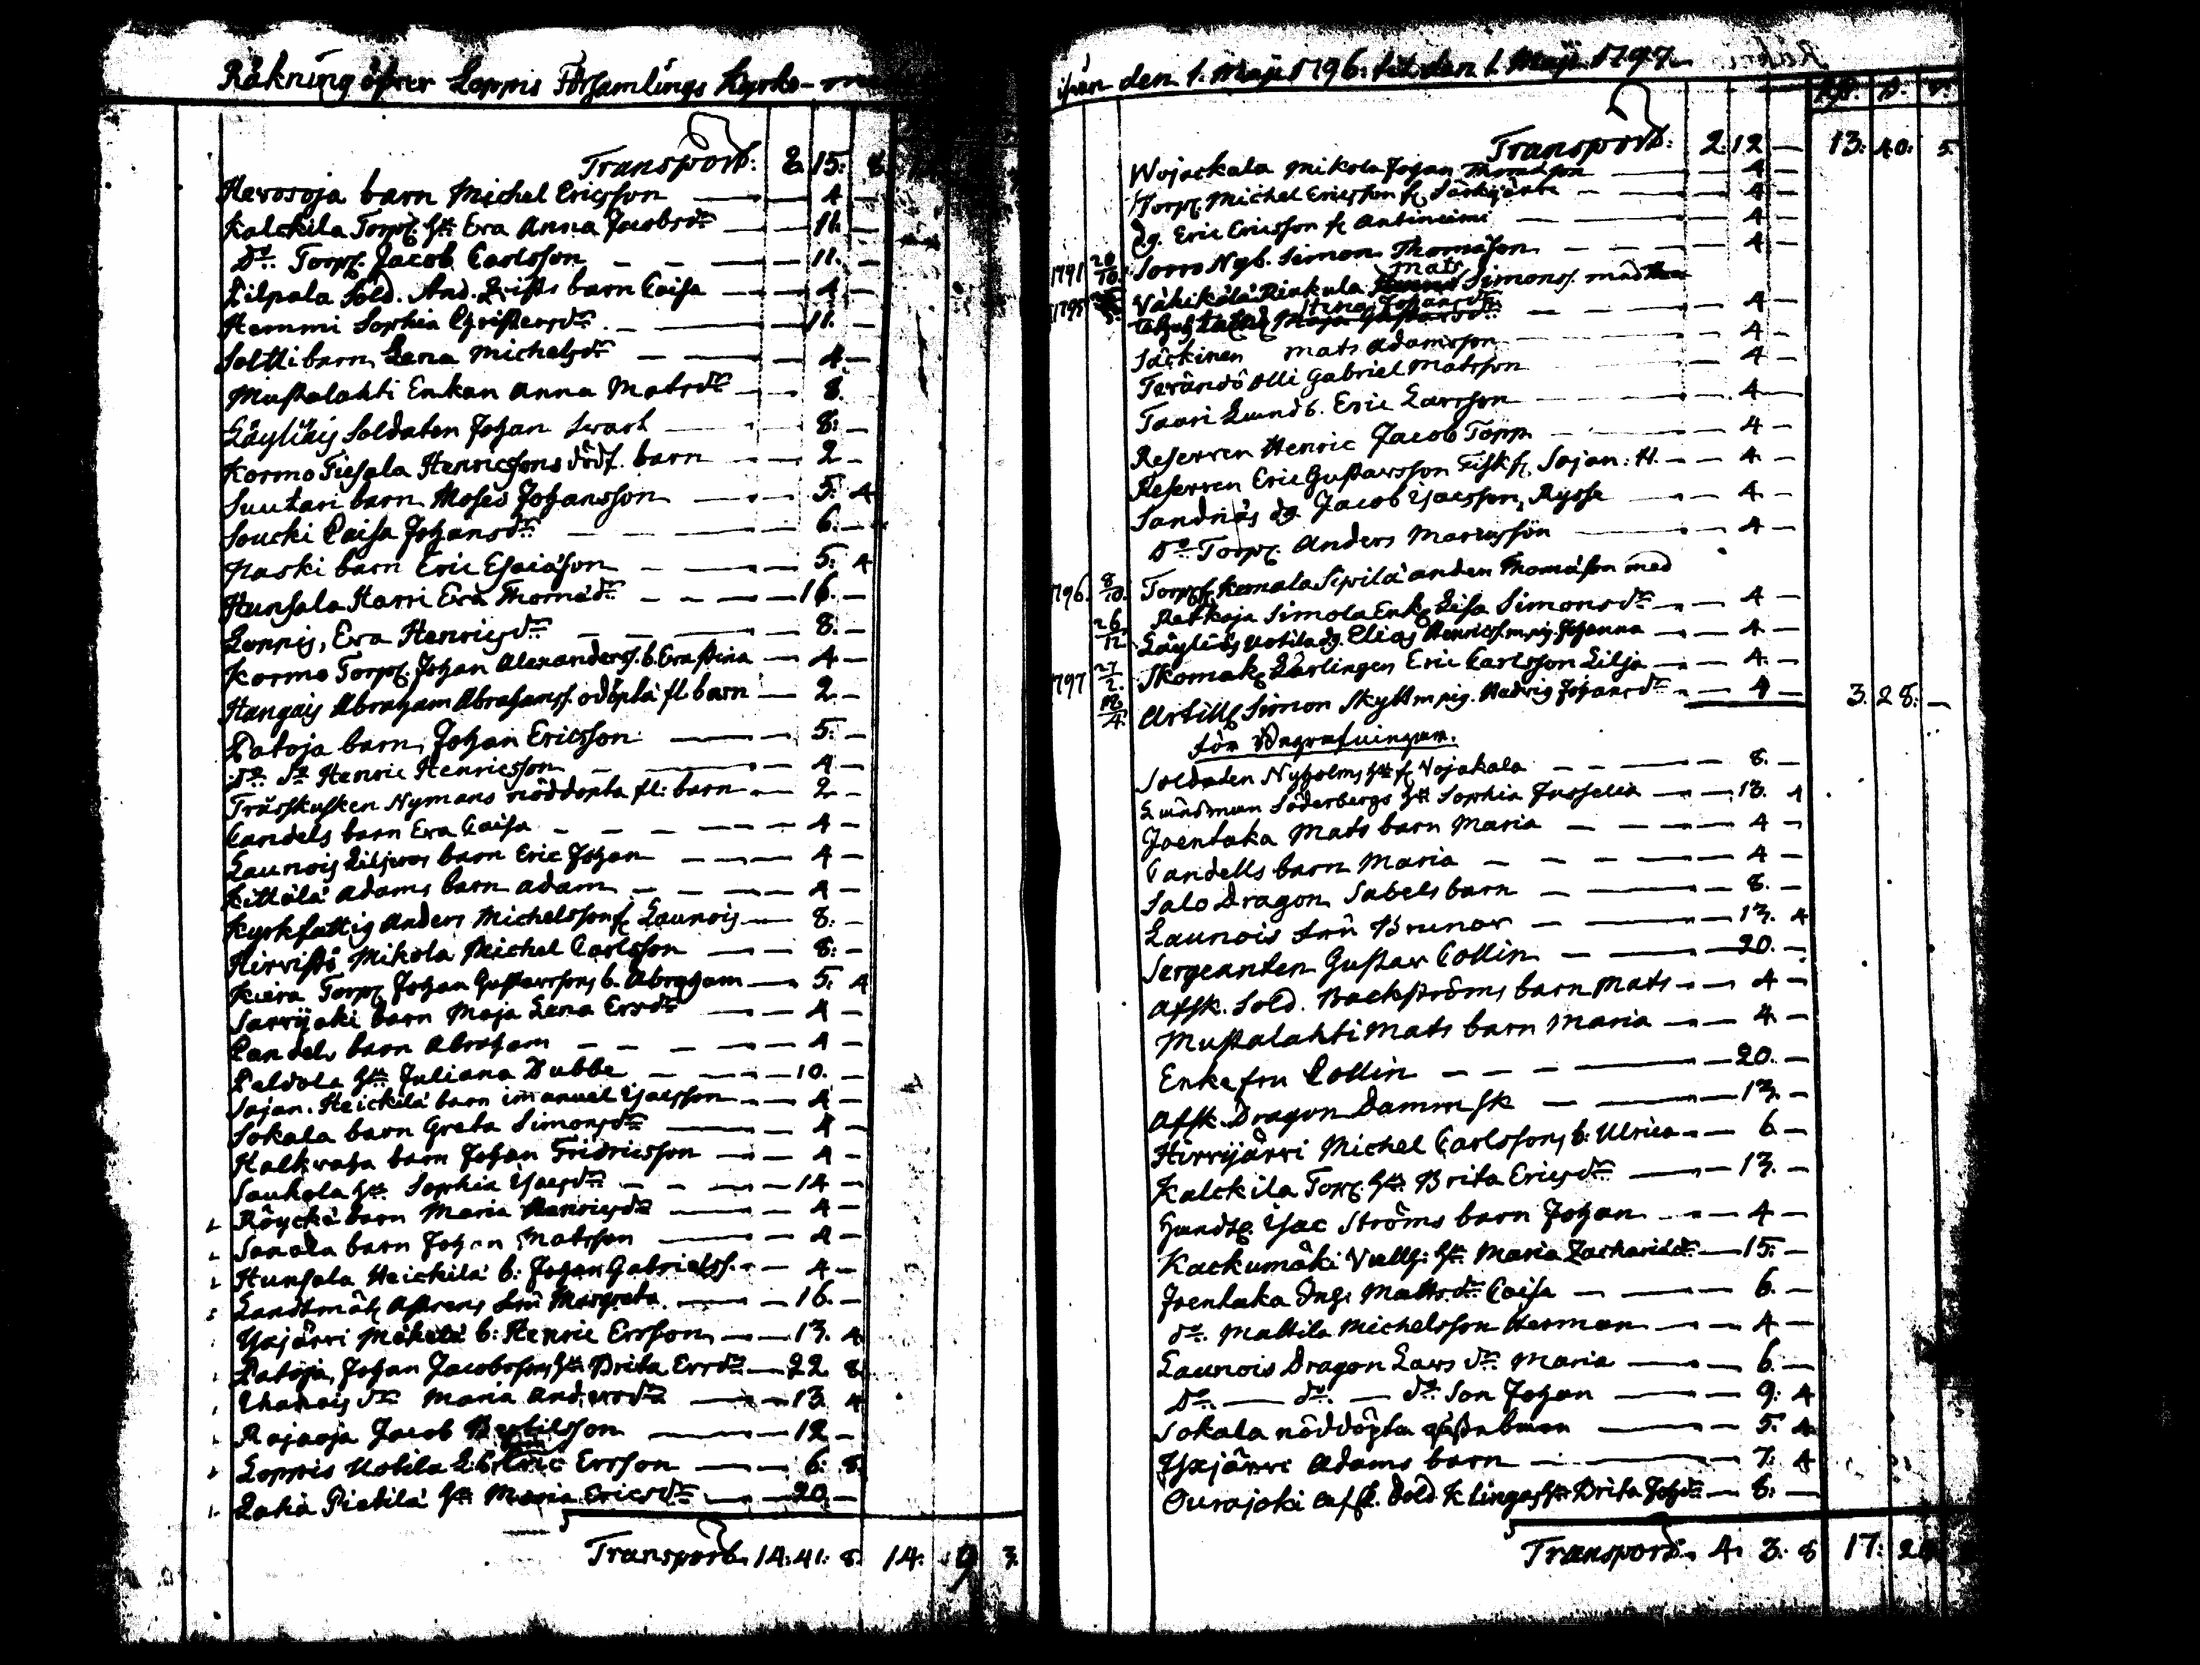 Räkning öfver Loppis Församlings Kyrko-
Transport: 2. 15: 8.
Hevosoja barn Michel Ericsson — 4 —
Kalckila Torp. Hu Eva Anna Jacobsdr — 11. —
Do Torp. Jacob Carlsson — 11. —
Pilpala Sold. And. Qvists barn Caisa — 4 —
Hemmi Sophia Christersdr — 11. —
Soltti barn Lena Michelsdr — 4 —
Mustalahti Enkan Anna Matsdr — 8.
Läyliäis Soldaten Johan Svart — 8: —
Kormo Tiesala Henricsons dödf. barn — 2 —
Suutari barn Moses Johansson — 5. 4
Soucki Caisa Johansdr — 6. —
Paski barn Eric Esaiasson — 5: 4
Hunsala Harri Eva Thomædr — 16. —
Loppis, Eva Henricsdr — 8. —
Kormo Torp. Johan Alexanders. b. Eva Stina — 4 —
Hangais Abraham Abrahams. odöpta fl barn — 2 —
Patoja barn Johan Ericsson — 5. —
Do do Henric Henricsson — 4 —
Trässkusken Nymans nöddopta fl: barn — 2 —
Candels barn Eva Caisa — 4 —
Launois Liljeros barn Eric Johan — 4 —
Kittälä Adams barn Adam — 4 —
Kyrkfattig Anders Michelsson f. Launois — 8: —
Hirvistö Mikola Michel Carlsson — 8: —
Kiera Torp. Johan Gustavssons b. Abraham — 5. 4
Sarvijoki barn Maja Lena Ersdr — 4 —
Candels barn Abraham — 4 —
Paldola Hu Juliana Dubbe — 10. —
Sajan. Heickilä barn Immanuel Isacsson — 4 —
Sokala barn Greta Simonsdr — 4 —
Kalkvaha barn Johan Fridricsson — 4 —
Saukola Hu Sophia Isacsdr — 14 —
Röyckä barn Maria Henricsdr — 4 —
Sanola barn Johan Matsson — 4 —
Hunsala Heickilä b: Johan Gabrielss. — 4 —
Landtmät. Astrens Fru Margreta — 16. —
Ysajärvi Mäkelä b: Henric Ersson — 13. 4
Patoja, Johan Jacobssons Hu Brita Ersdr — 22 8
do Maria Andersdr — 13. 4
Rajaoja Jacob Bertilsson — 12 —
Loppis Uotila Eric Ersson — 6: 8.
Pietilä Hu Maria Ericsdr — 20. —
Transport. 14. 41: 8. 14: 9 3.
ifrån den 1. Maji 1796. til den 1. Maji 1797.
Transport: 2. 12 — 13: 40: 5
Wojackala Mikola Johan Thomasson — 4 —
Torp. Michel Ericsson f. Särkijärvi — 4 —
Dg. Eric Ericsson f. Antiniemi — 4 —
1791 20/10. Sorro Nyb. Simon Thomasson — 4 —
1795 Vähikälä Riukula Mats Simons. med
Stina Johansdr — 4 —
Säckinen Mats Adamsson — 4 —
Terändö Olli Gabriel Matsson — 4 —
Taari Lundb. Eric Larsson — 4 —
Reserven Henric Jacob Topp — 4 —
Reserven Eric Gustavsson Fisk f. Sajan: H. — 4. —
Sandnäs dg Jacob Isacsson, Rysse — 4 —
Do Torp. Anders Marcusson — 4 —
1796. 8/10. Torp. f. Kemala Sipilä Anders Thomasson med
Ratkoja Simola Enk. Lisa Simonsdr — 4 —
26/12 Läyliäis Uotila dg. Elias Henrics. m. pig. Johanna — 4 —
1797 27/2. Skomak. Lärlingen Eric Carlsson Lilja — 4. —
18/4. Artill. Simon Skytt m. pig. Hedvig Johansdr — 4 — 3. 28: —
för Begrafningar.
Soldaten Nyholms Hu f. Vojakala — 8. —
Länsman Söderbergs Hu Sophia Juselia — 13. 4
Joentaka Mats barn Maria — 4 —
Candells barn Maria — 4 —
Salo Dragon Sabels barn — 8. —
Launois Fru Brunow — 13. 4
Sergeanten Gustav Collin — 20. —
Afsk. Sold. Backströms barn Mats — 4 —
Mustalahti Mats barn Maria — 4 —
Enkefru Collin — 20. —
Afsk. Dragon Dammsk — 13. —
Hirvijärvi Michel Carlssons b. Ulrica — 6 —
Kalckila Torp. Hu Brita Ericsdr — 13. —
Isac Ströms barn Johan — 4 —
Kackumäki Hu Maria Zachariædr — 15: —
Joentaka Matsdr Caisa — 6. —
do. Mattila Michelsson Herman — 4 —
Launois Dragon Lars dr Maria — 6. —
Do — do — do Son Johan — 9: 4
Sokala nöddöpta — 5. 4
Ysajärvi Adams barn — 7: 4
Ourajoki afsk. Sold. Klingas Hu Brita Johdr — 8: —
Transport. 4. 3. 8 17: 2